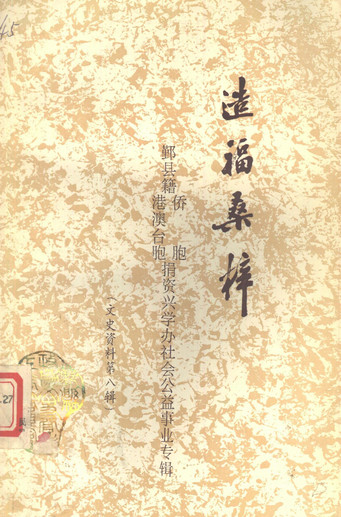 造福桑梓
鄞县籍侨胞
港澳台胞捐资兴学办社会公益事业专辑
（文史资料第八辑）
45
.27